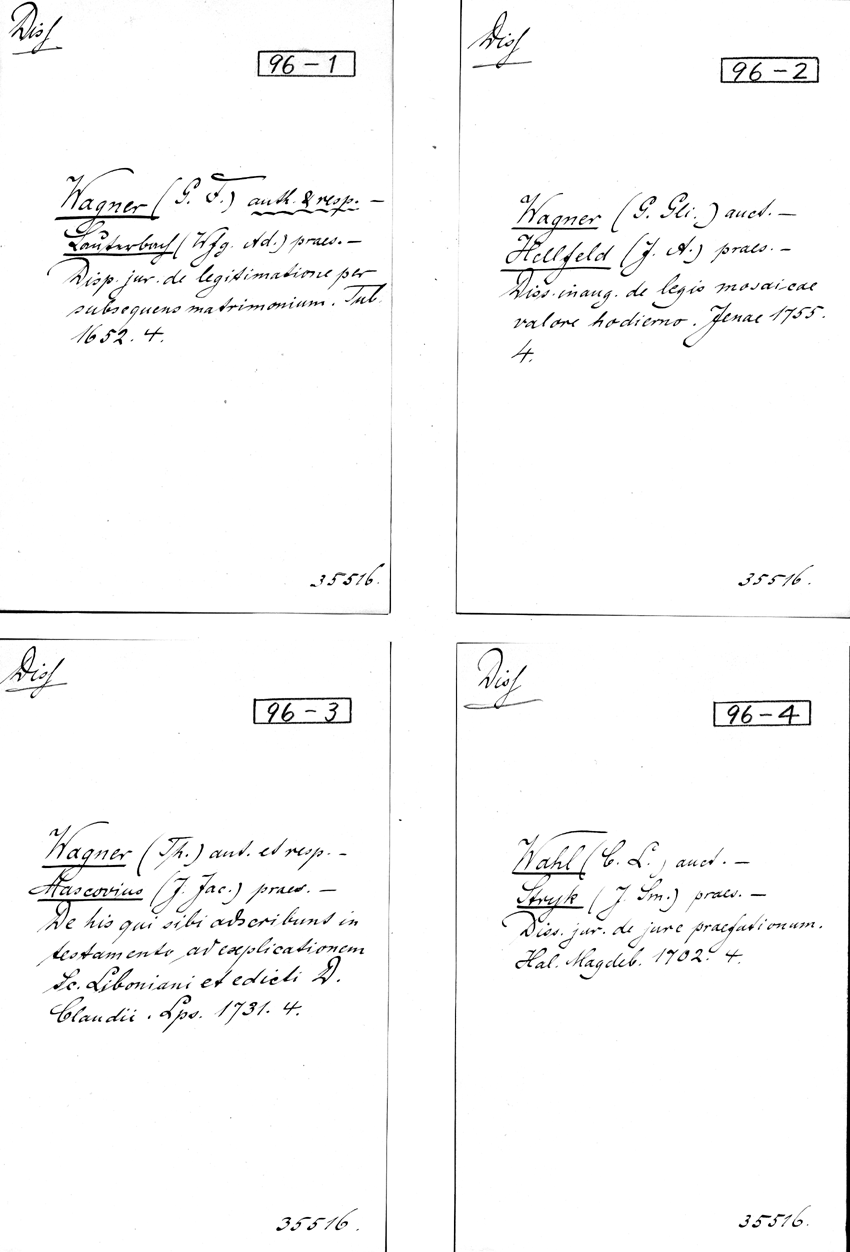 Diss
96-1
Wagner (G. F.) auth. & resp. —
Lauterbach (Wfg. Ad.) praes. —
Disp. jur. de legitimatione per
subsequens matrimonium. Tub.
1652. 4.
35516.
Diss
96-2
Wagner (G. Gli.) auct. —
Hellfeld (J. A.) praes. —
Diss. inaug. de legis mosaicae
valore hodierno. Jenae 1755.
4.
35516.
Diss
96-3
Wagner (Th.) aut. et resp. —
Mascovius (J. Jac.) praes. —
De his qui sibi adscribunt in
testamento ad explicationem
Sc. Liboniani et edicti D.
Claudii. Lps. 1731. 4.
35516.
Diss
96-4
Wahl (C. L.) auct. —
Stryk (J. Sm.) praes. —
Diss. jur. de jure praefationum.
Hal. Magdeb. 1702. 4.
35516.